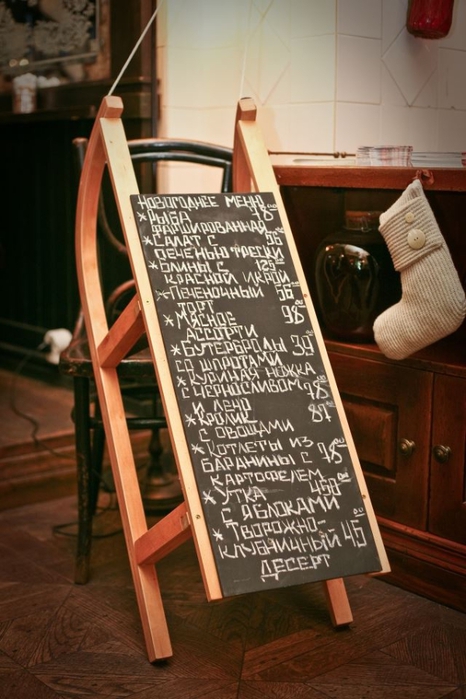 НОВОГОДНЕЕ МЕНЮ
* РЫБА 78
ФАРШИРОВАННАЯ
* САЛАТ С 56
ПЕЧЕНЬЮ ТРЕСКИ
* БЛИНЫ С 125
КРАСНОЙ ИКРОЙ
* ПЕЧЕНОЧНЫЙ 56
ТОРТ
* МЯСНОЕ 98
АССОРТИ
* БУТЕРБРОДЫ 39
СО ШПРОТАМИ
* КУРИНАЯ НОЖКА
С ЧЕРНОСЛИВОМ 78
И
* КРОЛИК 87
С ОВОЩАМИ
* КОТЛЕТЫ ИЗ
БАРАНИНЫ С 98
КАРТОФЕЛЕМ
* УТКА
С ЯБЛОКАМИ
* ТВОРОЖНО-
КЛУБНИЧНЫЙ 45
ДЕСЕРТ